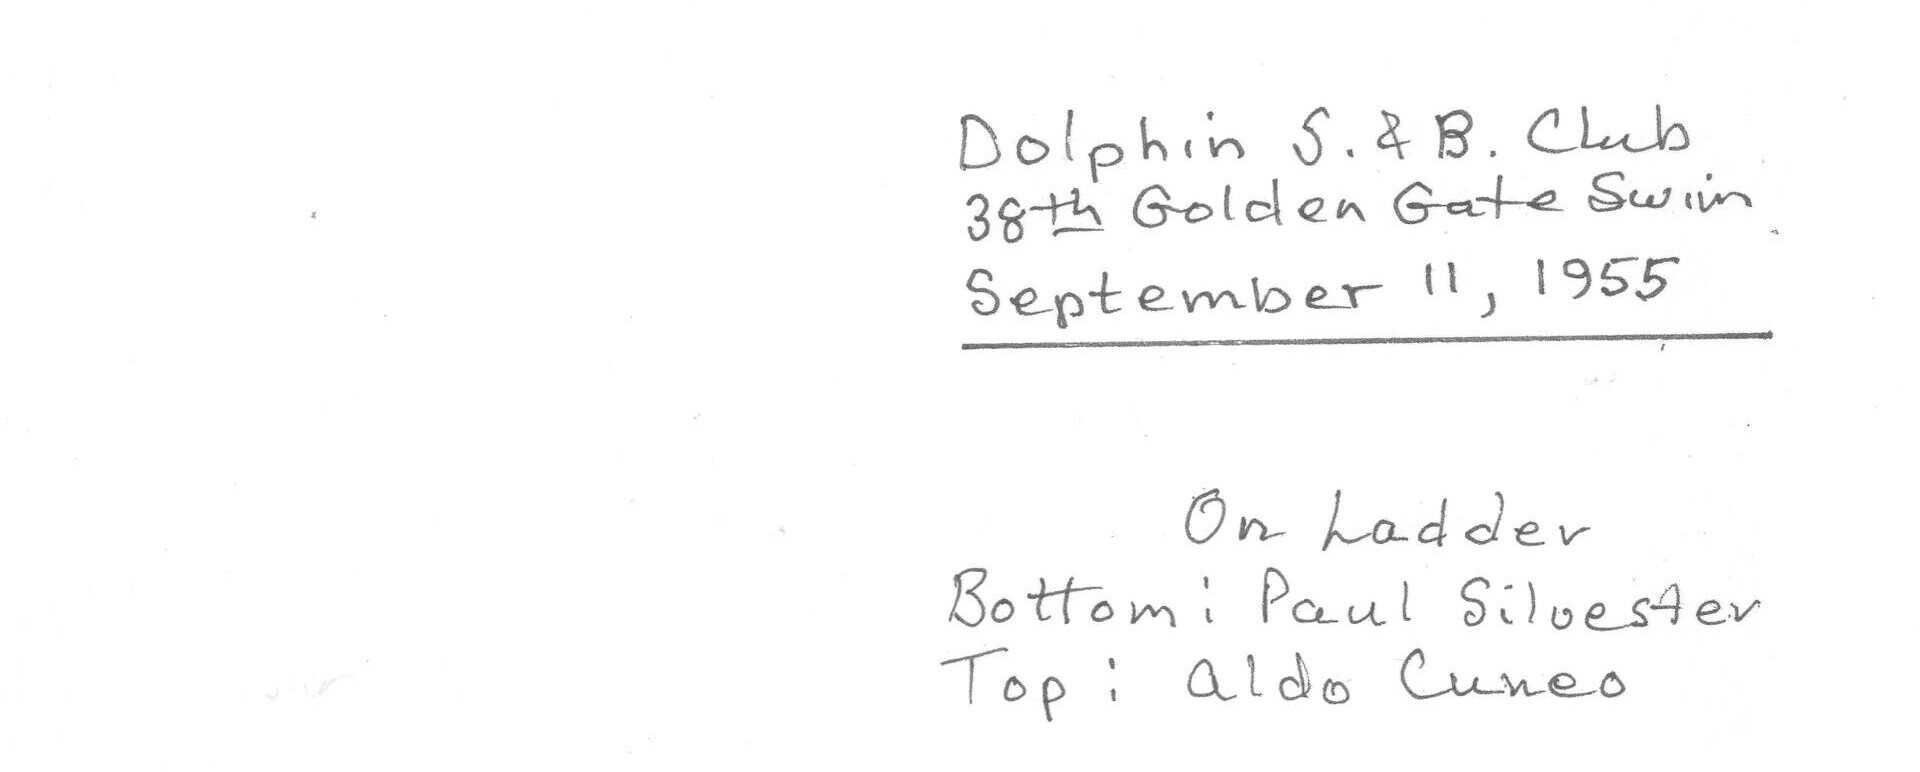 Dolphin S. & B. Club
38th Golden Gate Swim
September 11, 1955
On Ladder
Bottom: Paul Silvester
Top: Aldo Cuneo